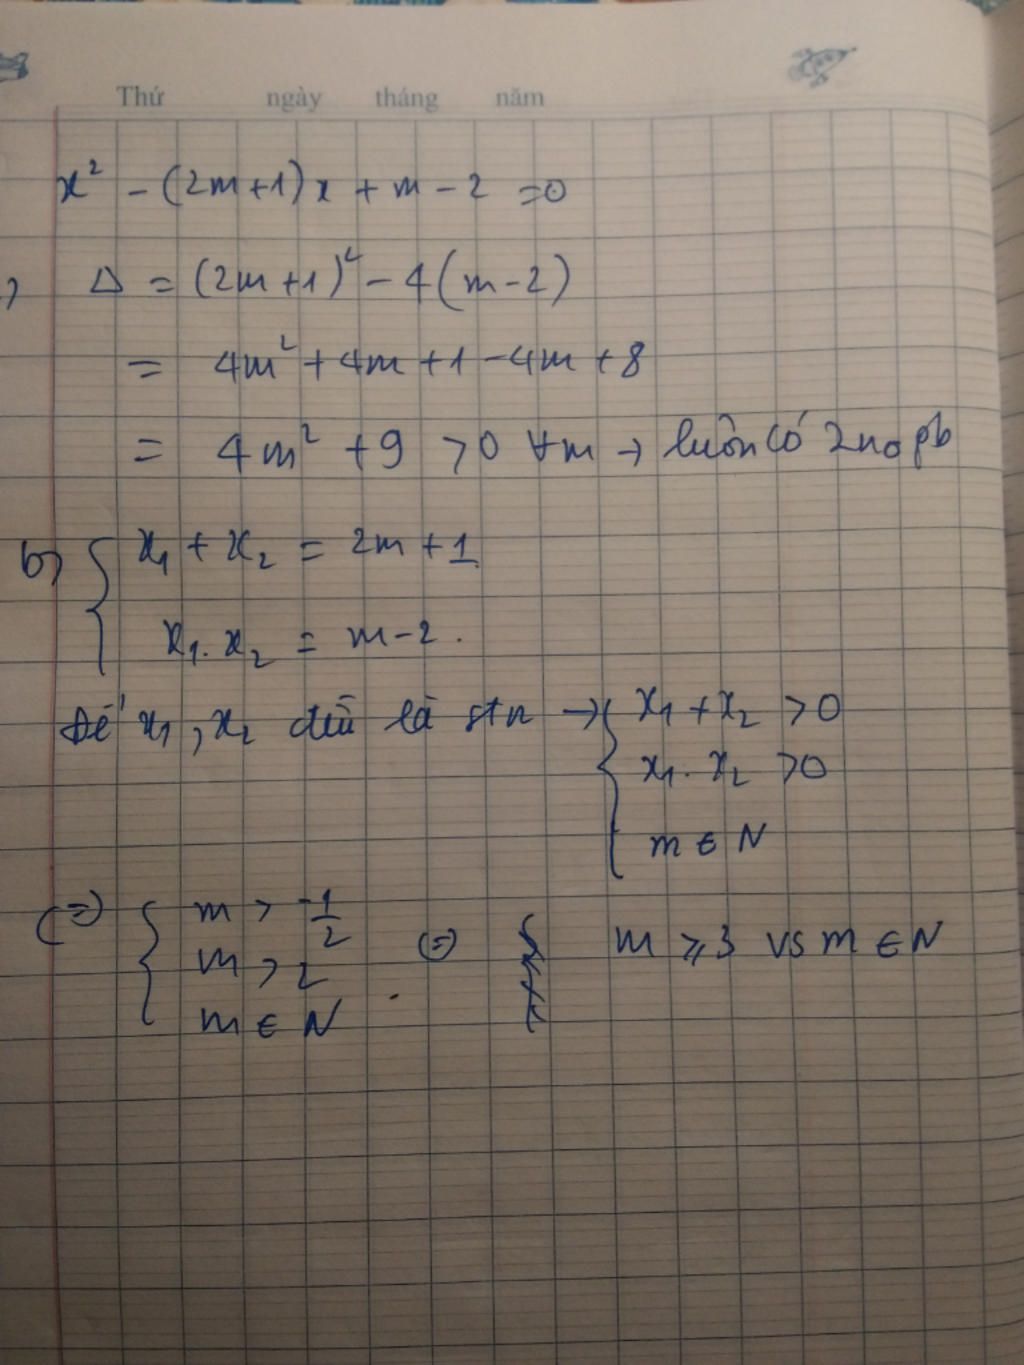 Thứ ngày tháng năm
x² - (2m+1)x + m - 2 = 0
Δ = (2m+1)² - 4(m-2)
= 4m² + 4m + 1 - 4m + 8
= 4m² + 9 > 0 ∀m → luôn có 2no pb
b) { x₁ + x₂ = 2m + 1
x₁. x₂ = m - 2.
Để x₁, x₂ đều là stn → { x₁ + x₂ > 0
x₁. x₂ > 0
m ∈ N
(=) { m > -1/2 (=) m ⩾ 3 vs m ∈ N
m > 2
m ∈ N